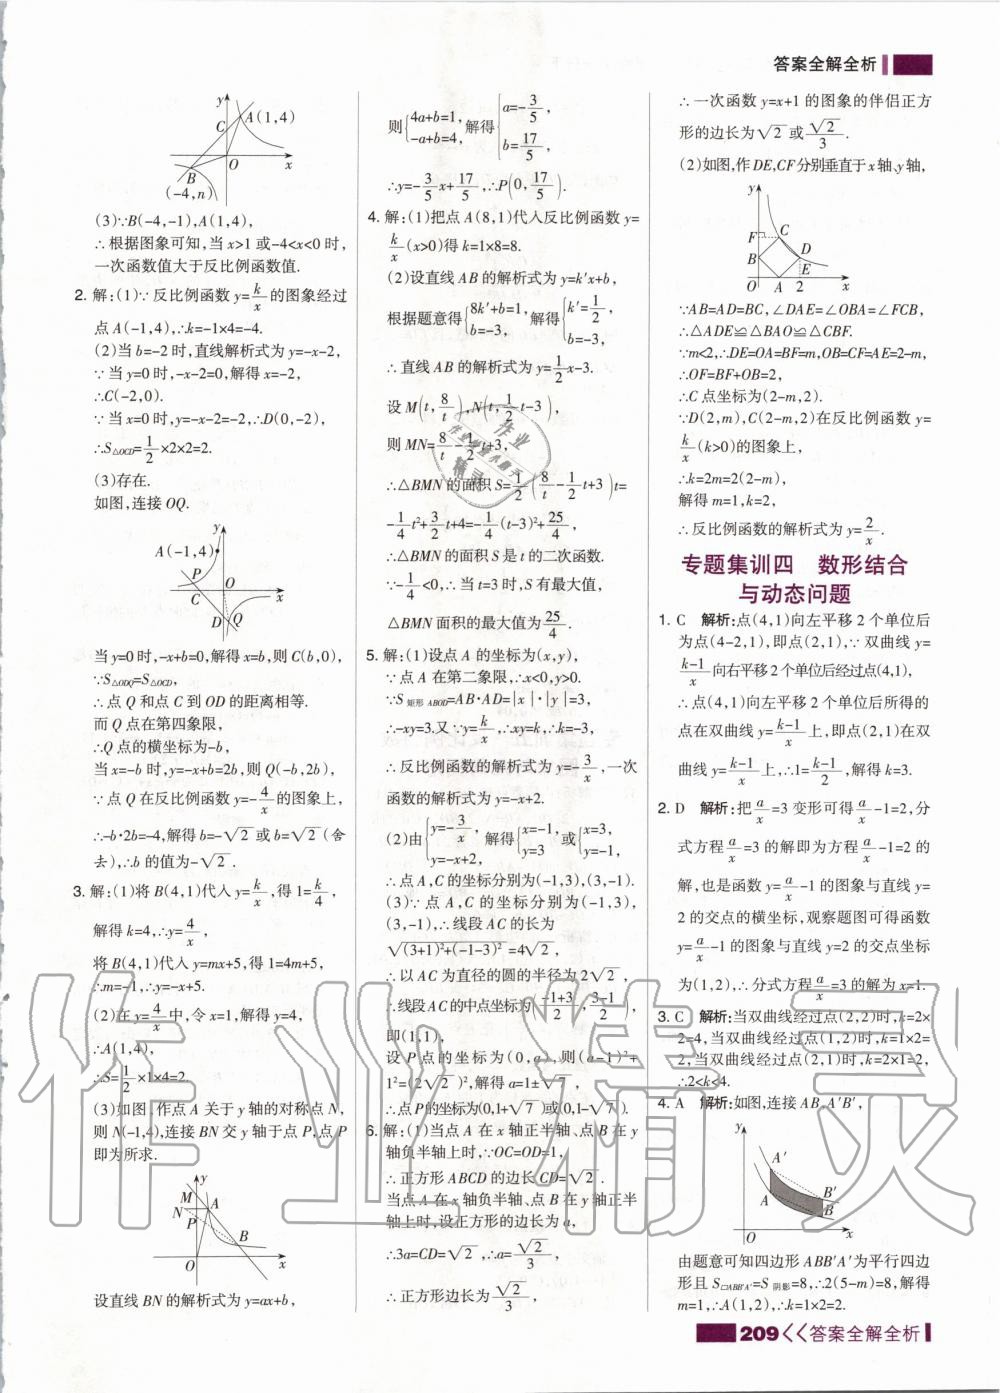 答案全解全析
y
A(1,4)
C
O
x
B
(-4,n)
(3)∵B(-4,-1),A(1,4),
∴根据图象可知,当x>1或-4<x<0时,
一次函数值大于反比例函数值.
2. 解:(1)∵反比例函数y=k/x的图象经过
点A(-1,4),∴k=-1×4=-4.
(2)当b=-2时,直线解析式为y=-x-2,
∵当y=0时,-x-2=0,解得x=-2,
∴C(-2,0).
∵当x=0时,y=-x-2=-2,∴D(0,-2),
∴S△OCD=1/2×2×2=2.
(3)存在.
如图,连接OQ.
y
A(-1,4)
P
O
C
x
D
Q
当y=0时,-x+b=0,解得x=b,则C(b,0),
∵S△ODQ=S△OCD,
∴点Q和点C到OD的距离相等.
而Q点在第四象限,
∴Q点的横坐标为-b,
当x=-b时,y=-x+b=2b,则Q(-b,2b),
∵点Q在反比例函数y=-4/x的图象上,
∴-b·2b=-4,解得b=-√2或b=√2(舍
去),∴b的值为-√2.
3. 解:(1)将B(4,1)代入y=k/x,得1=k/4,
解得k=4,∴y=4/x,
将B(4,1)代入y=mx+5,得1=4m+5,
∴m=-1,∴y=-x+5.
(2)在y=4/x中,令x=1,解得y=4,
∴A(1,4),
∴S=1/2×1×4=2.
(3)如图,作点A关于y轴的对称点N,
则N(-1,4),连接BN交y轴于点P,点P
即为所求.
y
M
A
N
P
B
O
x
设直线BN的解析式为y=ax+b,
则{4a+b=1, -a+b=4, 解得{a=-3/5, b=17/5,
∴y=-3/5x+17/5,∴P(0,17/5).
4. 解:(1)把点A(8,1)代入反比例函数y=
k/x(x>0)得k=1×8=8.
(2)设直线AB的解析式为y=k′x+b,
根据题意得{8k′+b=1, b=-3, 解得{k′=1/2, b=-3,
∴直线AB的解析式为y=1/2x-3.
设M(t,8/t),N(t,1/2t-3),
则MN=8/t-1/2t+3,
∴△BMN的面积S=1/2(8/t-1/2t+3)t=
-1/4t²+3/2t+4=-1/4(t-3)²+25/4,
∴△BMN的面积S是t的二次函数.
∵-1/4<0,∴当t=3时,S有最大值,
△BMN面积的最大值为25/4.
5. 解:(1)设点A的坐标为(x,y),
∵点A在第二象限,∴x<0,y>0.
∵S矩形ABOD=AB·AD=|x|·|y|=3,
∴-xy=3.又∵y=k/x,∴xy=k,∴k=-3,
∴反比例函数的解析式为y=-3/x,一次
函数的解析式为y=-x+2.
(2)由{y=-3/x, y=-x+2, 解得{x=-1, y=3 或{x=3, y=-1,
∴点A,C的坐标分别为(-1,3),(3,-1).
(3)∵点A,C的坐标分别为(-1,3),
(3,-1),∴线段AC的长为
√(3+1)²+(-1-3)²=4√2,
∴以AC为直径的圆的半径为2√2,
∴线段AC的中点坐标为(-1+3/2,3-1/2),
即(1,1),
设P点的坐标为(0,a),则(a-1)²+
1²=(2√2)²,解得a=1±√7,
∴点P的坐标为(0,1+√7)或(0,1-√7).
6. 解:(1)当点A在x轴正半轴、点B在y
轴负半轴上时,∵OC=OD=1,
∴正方形ABCD的边长CD=√2.
当点A在x轴负半轴、点B在y轴正半
轴上时,设正方形的边长为a,
∴3a=CD=√2,∴a=√2/3,
∴正方形边长为√2/3,
∴一次函数y=x+1的图象的伴侣正方
形的边长为√2或√2/3.
(2)如图,作DE,CF分别垂直于x轴、y轴,
y
F
C
B
D
E
O
A
2
x
∵AB=AD=BC,∠DAE=∠OBA=∠FCB,
∴△ADE≌△BAO≌△CBF.
∵m<2,∴DE=OA=BF=m,OB=CF=AE=2-m,
∴OF=BF+OB=2,
∴C点坐标为(2-m,2).
∵D(2,m),C(2-m,2)在反比例函数y=
k/x(k>0)的图象上,
∴k=2m=2(2-m),
解得m=1,k=2,
∴反比例函数的解析式为y=2/x.
专题集训四 数形结合
与动态问题
1. C 解析:点(4,1)向左平移2个单位后
为点(4-2,1),即点(2,1),∵双曲线y=
k-1/x向右平移2个单位后经过点(4,1),
∴点(4,1)向左平移2个单位后所得的
点在双曲线y=k-1/x上,即点(2,1)在双
曲线y=k-1/x上,∴1=k-1/2,解得k=3.
2. D 解析:把a/x=3变形可得a/x-1=2,分
式方程a/x=3的解即为方程a/x-1=2的
解,也是函数y=a/x-1的图象与直线y=
2的交点的横坐标,观察题图可得函数
y=a/x-1的图象与直线y=2的交点坐标
为(1,2),∴分式方程a/x=3的解为x=1.
3. C 解析:当双曲线经过点(2,2)时,k=2×
2=4,当双曲线经过点(1,2)时,k=1×2=
2,当双曲线经过点(2,1)时,k=2×1=2,
∴2<k<4.
4. A 解析:如图,连接AB,A′B′,
y
A′
A
B′
B
O
x
由题意可知四边形ABB′A′为平行四边
形且S▱ABB′A′=S阴影=8,∴2(5-m)=8,解得
m=1,∴A(1,2),∴k=1×2=2.
209<<答案全解全析
作业精灵